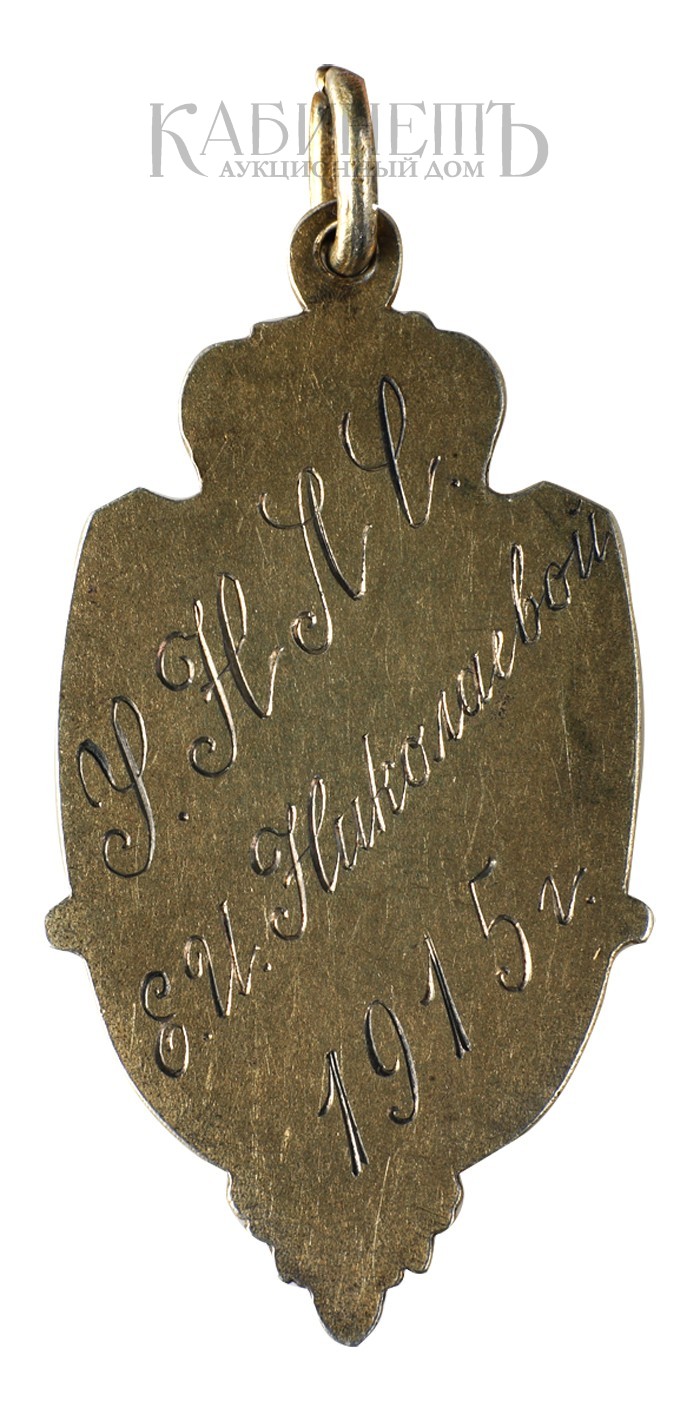 КАБИНЕТЪ
АУКЦИОННЫЙ ДОМ
У.Н.Л.С.
Е.И. Николаевой
1915 г.